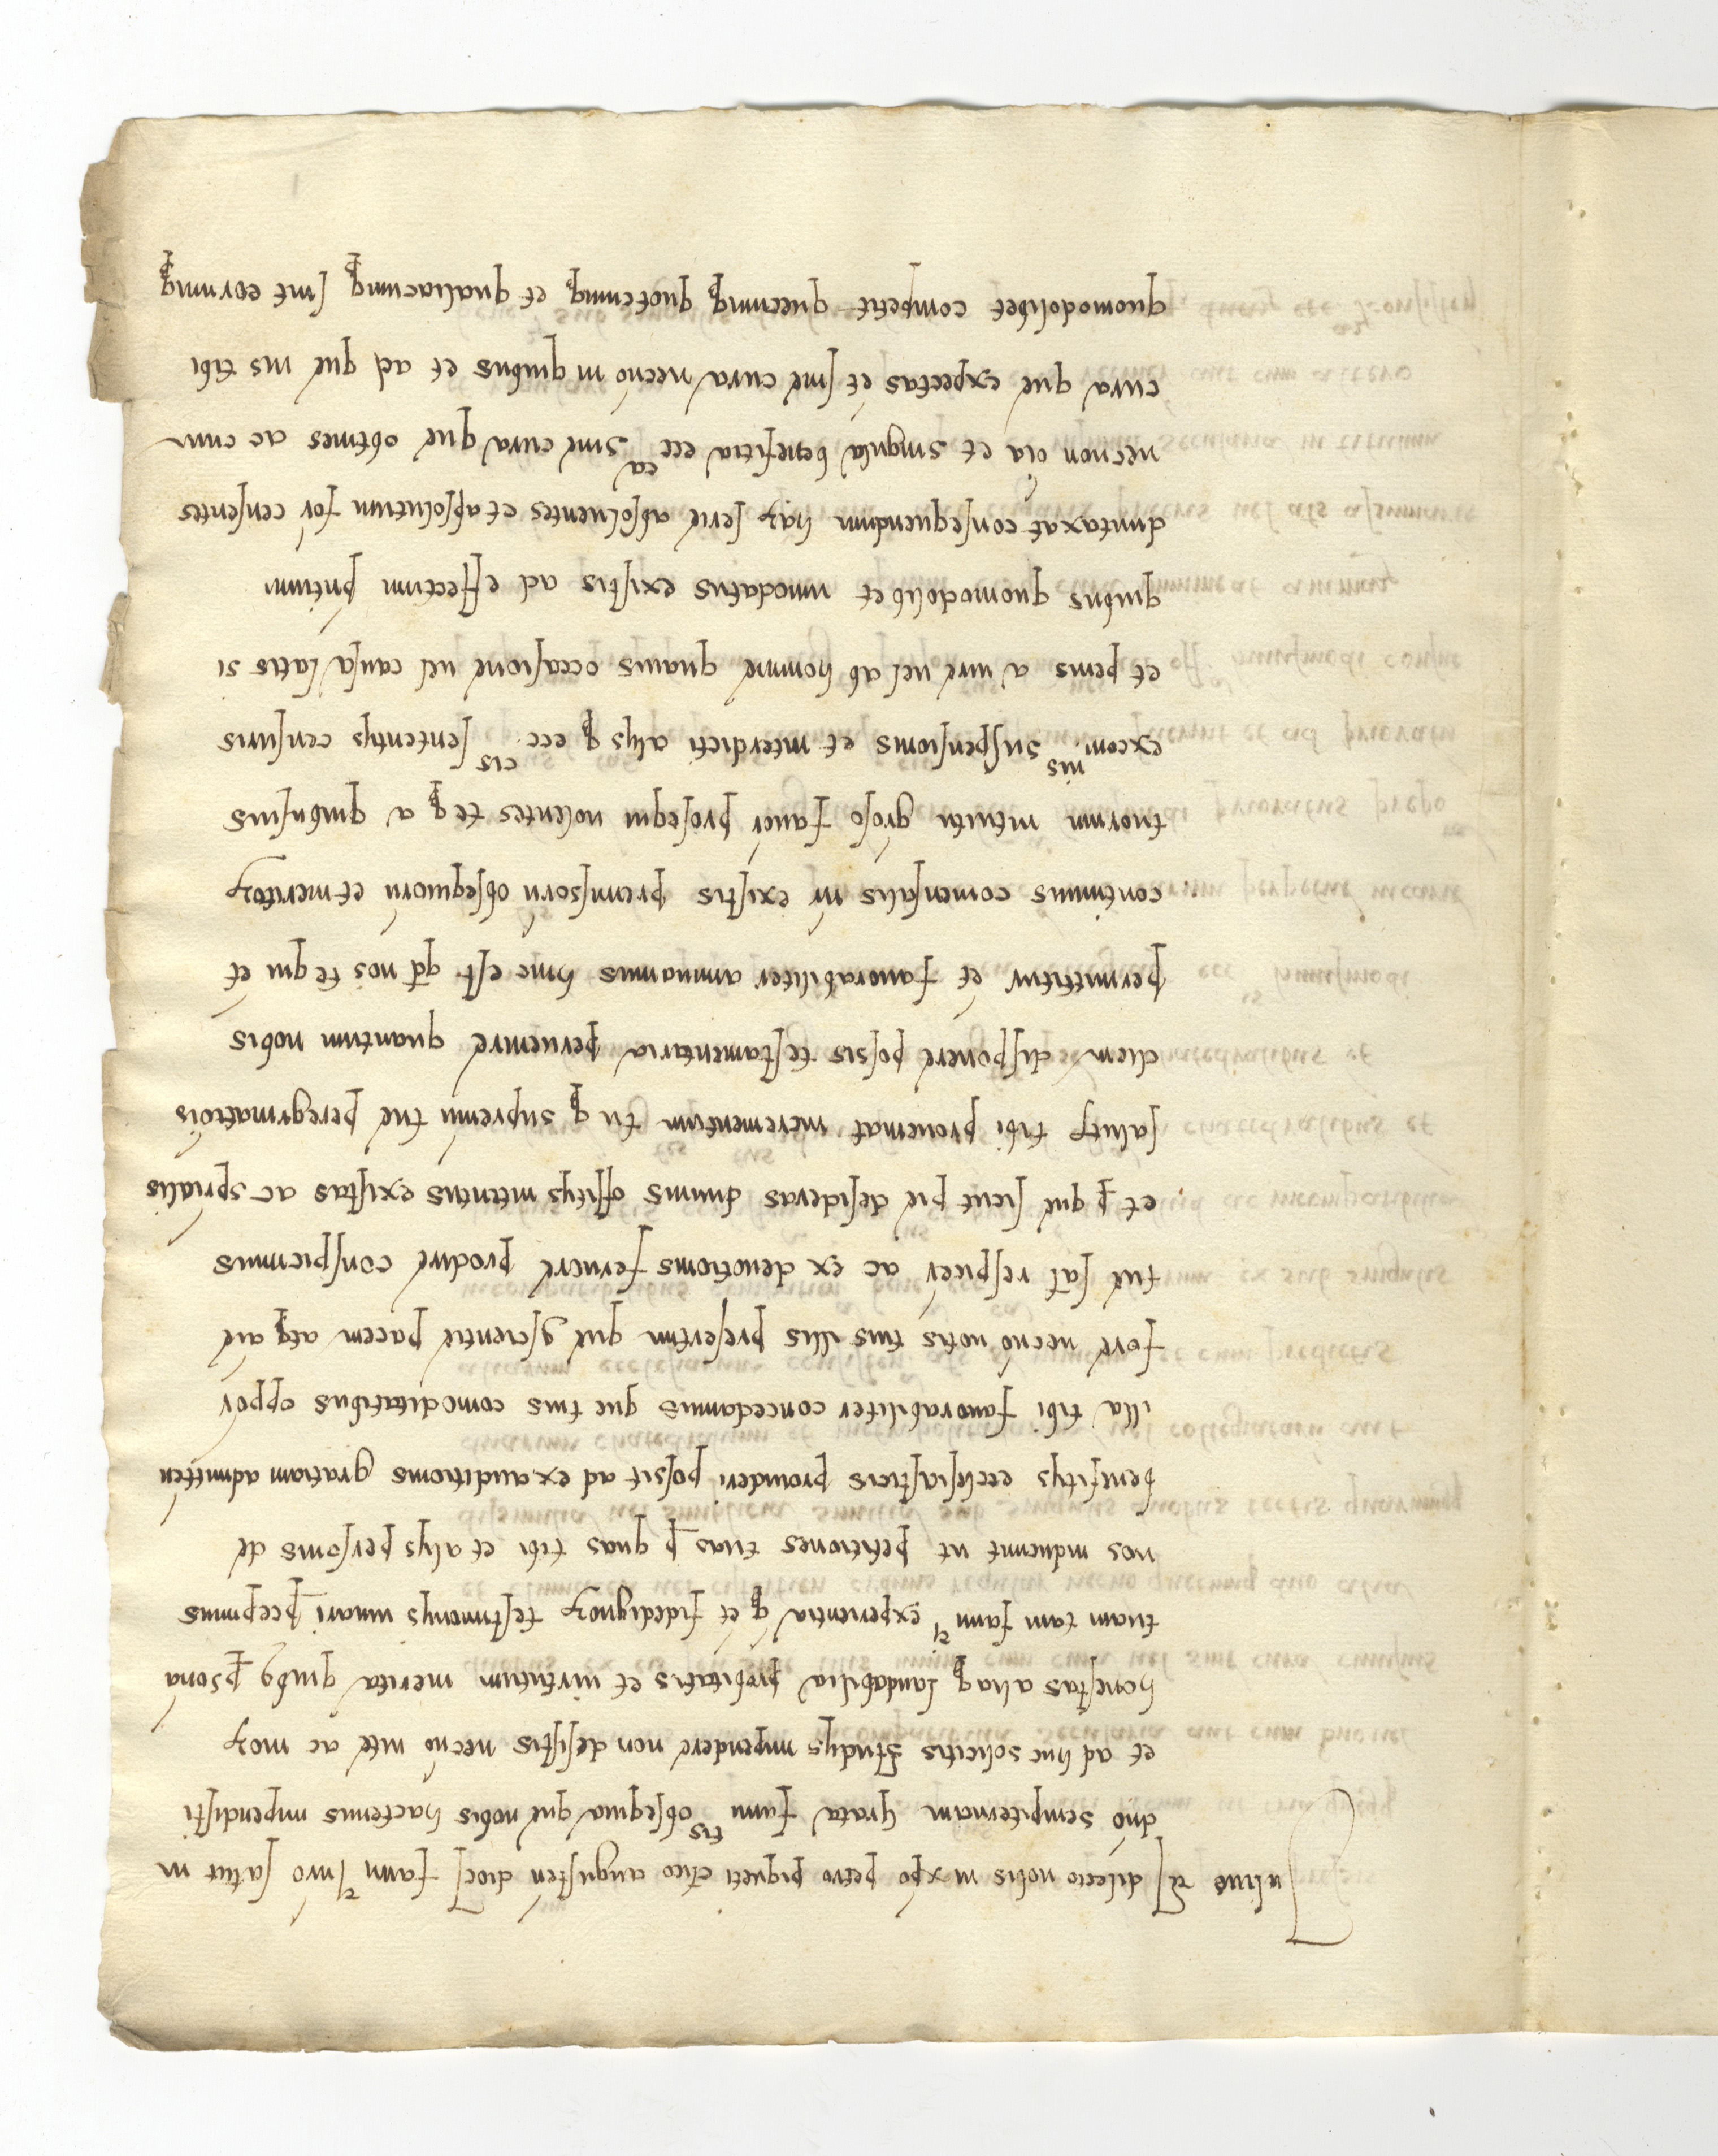 Iulius &c dilecto nobis in xpo petro piqueti clico augusten dioc fam^ri nro salut in
dno sempiternam Grata fam^tis obsequia que nobis hactenus impendisti
et ad huc solicitis studijs impendere non desistis necno uite ac moꝝ
honestas aliaqꝫ laudabilia probitatis et uirtutum merita quibꝫ psona
tuam tam fam^ri experientia qꝫ et fidedignoꝝ testimonijs iuuari pcepimus
nos inducunt ut petitiones tuas p quas tibi et alijs personis de
benefitijs ecclesiasticis prouideri possit ad exauditionis gratiam admitten
illa tibi fauorabiliter concedamus que tuis comoditatibus oppor
fore necno uotis tuis illis presertim que 9scientie pacem atqꝫ aie
tue sal respicer ac ex deuotionis feruore prodire conspicimus
et p que sicut pie desideras diuinis offitijs intentus existas ac spiualis
salutꝭ tibi proueniat incrementum tu qꝫ supremu tue peregrinatiois
diem disponere possis testamentaria peruenire quantum nobis
permittitur et fauorabiliter annuamus hinc est qd nos te qui et
continuus comensalis nr existis premissoru obsequioru et meritoꝝ
tuorum intuitu grioso fauor prosequi uolentes teqꝫ a quibusuis
excom^nis suspensionis et interdicti alijs qꝫ ecc^cis sententijs censuris
et penis a iure uel ab homine quauis occasione uel causa latis si
quibus quomodolibet innodatus existis ad effectum pntium
duntaxat consequendum haꝝ serie absoluentes et absolutum for censentes
necnon oia et singula benefitia ecc^ca sine cura que obtines ac cum
cura que expectas et sine cura necno in quibus et ad que ius tibi
quomodolibet competit quecunqꝫ quotcunqꝫ et qualiacunqꝫ sint eorunqꝫ